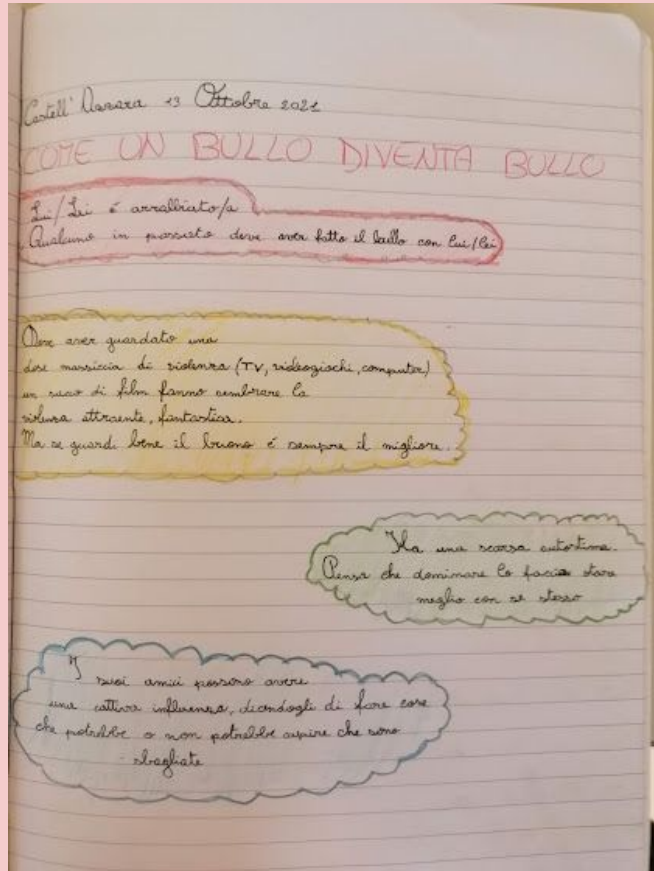 Castell'Azzara 13 Ottobre 2021
COME UN BULLO DIVENTA BULLO
Lui/Lei é arrabbiato/a
Qualcuno in passato deve aver fatto il bullo con lui/lei
Deve aver guardato una
dose massiccia di violenza (TV, videogiochi, computer)
un sacco di film fanno sembrare la
violenza attraente, fantastica.
Ma se guardi bene il buono é sempre il migliore.
Ha una scarsa autostima.
Pensa che dominare lo facia stare
meglio con se stesso
I suoi amici possono avere
una cattiva influenza, dicendogli di fare cose
che potrebbe o non potrebbe capire che sono
sbagliate